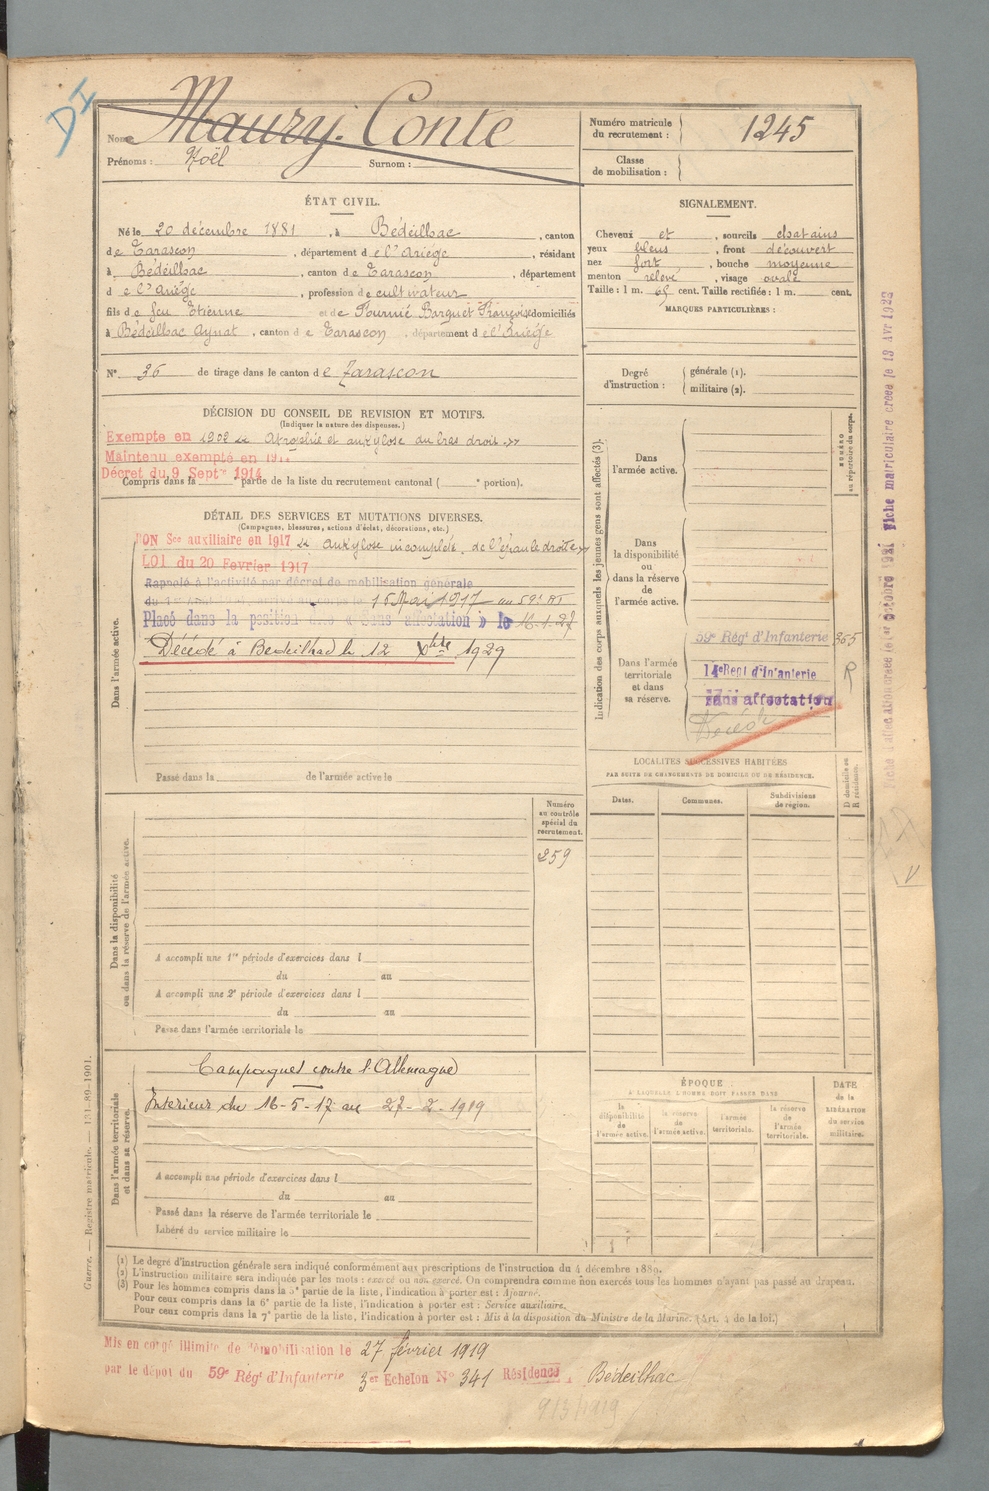 DI
Nom Maury-Conte
Prénoms : Noël Surnom :
Numéro matricule du recrutement : 1245
Classe de mobilisation :
ÉTAT CIVIL.
Né le 20 décembre 1881, à Bédeilhac, canton
de Tarascon, département de l'Ariège, résidant
à Bédeilhac, canton de Tarascon, département
d e l'Ariège, profession de cultivateur
fils de feu Etienne et de Fournié Barquet Françoise domiciliés
à Bédeilhac Aynat, canton de Tarascon, département de l'Ariège
N° 36 de tirage dans le canton de Tarascon
SIGNALEMENT.
Cheveux et , sourcils chatains
yeux bleus, front découvert
nez fort, bouche moyenne
menton relevé, visage ovale
Taille : 1 m. 65 cent. Taille rectifiée : 1 m. cent.
MARQUES PARTICULIÈRES :
Degré d'instruction : générale (1).
militaire (2).
DÉCISION DU CONSEIL DE REVISION ET MOTIFS.
(Indiquer la nature des dispenses.)
Exempté en 1902 Atrophie et ankylose du bras droit.
Maintenu exempté en 191
Décret du 9 Septre 1914
Compris dans la partie de la liste du recrutement cantonal ( portion).
DÉTAIL DES SERVICES ET MUTATIONS DIVERSES.
(Campagnes, blessures, actions d'éclat, décorations, etc.)
BON Sce auxiliaire en 1917 ankylose incomplète de l'épaule droite
LOI du 20 Février 1917
Rappelé à l'activité par décret de mobilisation générale
16 Mai 1917 au 59e RI
Placé dans la position dite « Sans affectation » le 16.1.27
Décédé à Bedeilhac le 12 Xbre 1929
Dans l'armée active.
Passé dans la de l'armée active le
Indication des corps auxquels les jeunes gens sont affectés (3).
Dans l'armée active.
NUMÉRO au répertoire du corps.
Dans la disponibilité ou dans la réserve de l'armée active.
Dans l'armée territoriale et dans sa réserve.
59e Rég' d'Infanterie 355
14e Régt d'Infanterie R
Sans affectation
Décédé
LOCALITÉS SUCCESSIVES HABITÉES
PAR SUITE DE CHANGEMENTS DE DOMICILE OU DE RÉSIDENCE.
Dates. Communes. Subdivisions de région. D domicile ou R résidence.
Numéro au contrôle spécial du recrutement.
259
Dans la disponibilité ou dans la réserve de l'armée active.
A accompli une 1re période d'exercices dans l
du au
A accompli une 2e période d'exercices dans l
du au
Passé dans l'armée territoriale le
Campagnes contre l'Allemagne
Intérieur du 16-5-17 au 27-2-1919
Dans l'armée territoriale et dans sa réserve.
A accompli une période d'exercices dans l
du au
Passé dans la réserve de l'armée territoriale le
Libéré du service militaire le
ÉPOQUE
A LAQUELLE L'HOMME DOIT PASSER DANS
la disponibilité de l'armée active. la réserve de l'armée active. l'armée territoriale. la réserve de l'armée territoriale.
DATE de la LIBÉRATION du service militaire.
(1) Le degré d'instruction générale sera indiqué conformément aux prescriptions de l'instruction du 4 décembre 1889.
(2) L'instruction militaire sera indiquée par les mots : exercé ou non exercé. On comprendra comme non exercés tous les hommes n'ayant pas passé au drapeau.
(3) Pour les hommes compris dans la 5e partie de la liste, l'indication à porter est : Ajourné.
Pour ceux compris dans la 6e partie de la liste, l'indication à porter est : Service auxiliaire.
Pour ceux compris dans la 7e partie de la liste, l'indication à porter est : Mis à la disposition du Ministre de la Marine. (Art. 4 de la loi.)
Mis en congé illimité de démobilisation le 27 février 1919
par le dépôt du 59e Rég' d'Infanterie 3er Echelon N° 341 Résidence Bédeilhac
9/3/1919
Guerre. — Registre matricule. — 131-89-1901.
Fiche d'affectation créée le 1er Octobre 1921 Fiche matriculaire créée le 13 Avr 1923
V